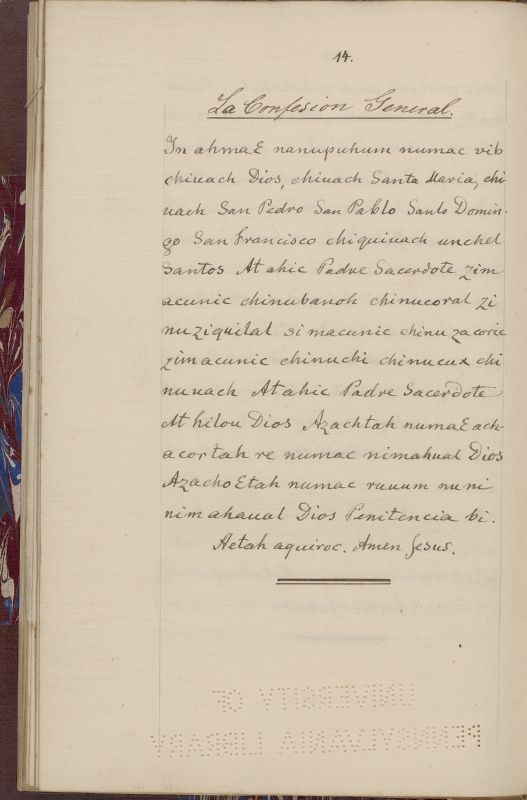 14.
La Confesion General.
In ahmaE nanupuhum numac vib
chiuach Dios, chiuach Santa Maria, chi
uach San Pedro San Pablo Santo Domin-
go San Francisco chiquiuach unchel
Santos At ahic Padre Sacerdote zim
acunic chinubanoh chinucoral zi
nuziquilal si macunic chinu zacoric
zimacunic chinuchi chinucux chi
nuuach At ahic Padre Sacerdote
At hilou Dios Azachtah numaE ach-
acortah re numac nimahual Dios
AzachoEtah numac ruuum nuni
nimahaual Dios Penitencia bi.
Aetah aquiroc. Amen Jesus.
UNIVERSITY OF
PENNSYLVANIA LIBRARY